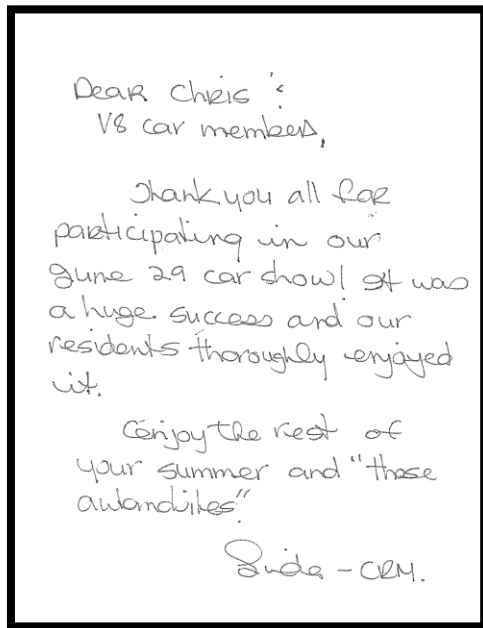 Dear Chris &
V8 car members,
Thank you all for
participating in our
June 29 car show! It was
a huge success and our
residents thoroughly enjoyed
it.
Enjoy the rest of
your summer and "those
automobiles"
Linda - CRM.